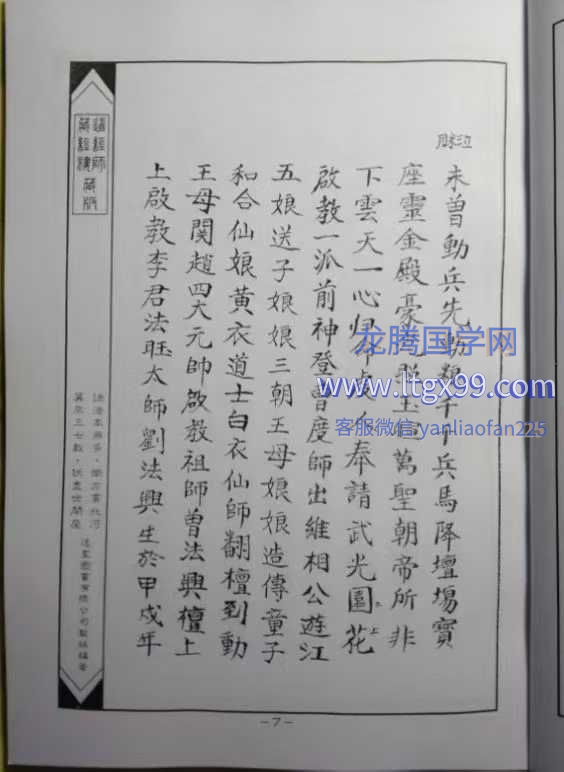 未曾動兵先動 兵馬降壇塲寶
座靈金殿豪 萬聖朝帝所非
下雲天一心 奉請武光園花
啟教一派前神登曾度師出維相公遊江
五娘送子娘娘三朝王母娘娘造傳童子
和合仙娘黃衣道士白衣仙師翻檀到動
王母関趙四大元帥啟教祖師曾法興檀上
上啟教李君法旺太師劉法興生於甲戍年
龙腾国学网
www.ltgx99.com
客服微信:yanliaofan225
－7－